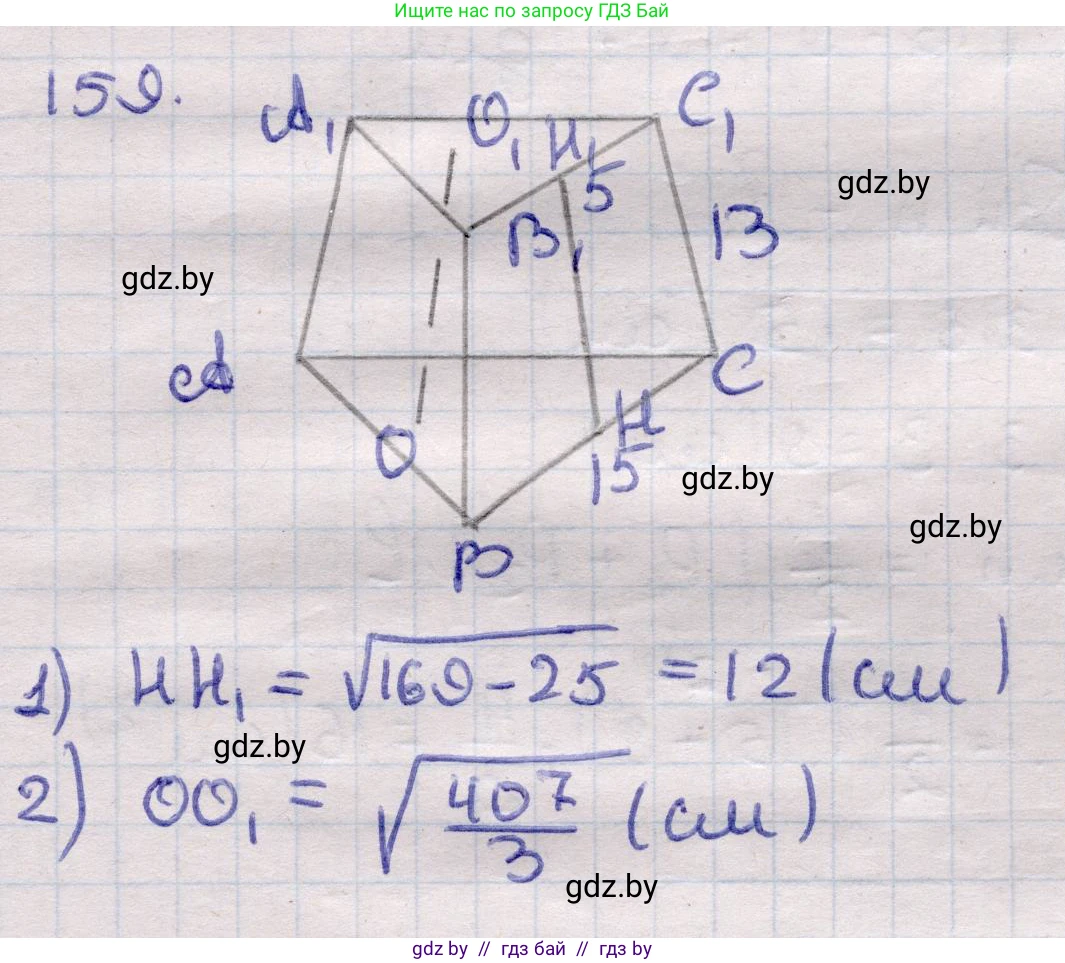 Ищите нас по запросу ГДЗ Бай
159.
A₁ O₁ H₁ C₁
5
gdz.by
B₁ 13
gdz.by
A C
O H
15 gdz.by
gdz.by
B
1) HH₁ = √169-25 = 12 (см)
gdz.by
2) OO₁ = √407/3 (см)
gdz.by
gdz by // гдз бай // гдз by